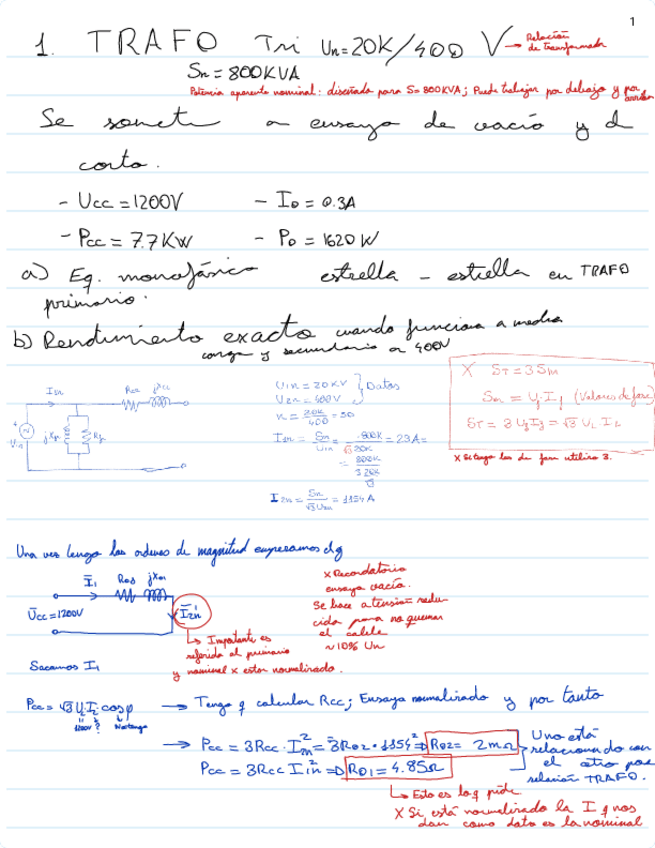 1
1. TRAFO Tri Un=20K/400 V → Relación de transformador
Sn = 800KVA
Potencia aparente nominal: diseñada para S=800KVA; Puede trabajar por debajo y por arriba
Se somete a ensayo de vacío y d
corto.
- Ucc = 1200V - I0 = 0.3A
- Pcc = 7.7KW - P0 = 1620W
a) Eq. monofásico estrella - estrella en TRAFO
primario.
b) Rendimiento exacto cuando funciona a media
carga y secundario a 400V
I1n Rcc jXcc
U1n = 20KV } Datos
U2n = 400V
n = 20K/400 = 50
I1n = Sn/U1n = 800K/√3 20K = 23A =
= 800K/3 20K
I2n = Sn/√3 U2n = 1154 A
X ST = 3 Sm
Sm = Uf If (Valores de fase)
ST = 3 Uf If = √3 UL IL
X Si tengo los de fase utilizo 3.
Una vez tengo los ordenes de magnitud empezamos
I1 Rcc jXcc
Ucc = 1200V
I2n'
↳ Importante es
referido al primario
y nominal x estar normalizado.
X Recordatorio
ensayo vacío.
Se hace a tensión redu
cida para no quemar
el cable
~10% Un
Sacamos I1
Pcc = √3 U1 I1 cosφ → Tengo q calcular Rcc; Ensayo normalizado y por tanto
1200V ? No tengo
→ Pcc = 3Rcc · In² = 3R02 · 1154² ⇒ R02 = 2mΩ
Pcc = 3Rcc I1n² ⇒ R01 = 4.85Ω
Uno está
relacionado con
el otro por
relación TRAFO.
↳ Esto es lo q pide
X Si está normalizado la I q nos
dan como dato es la nominal